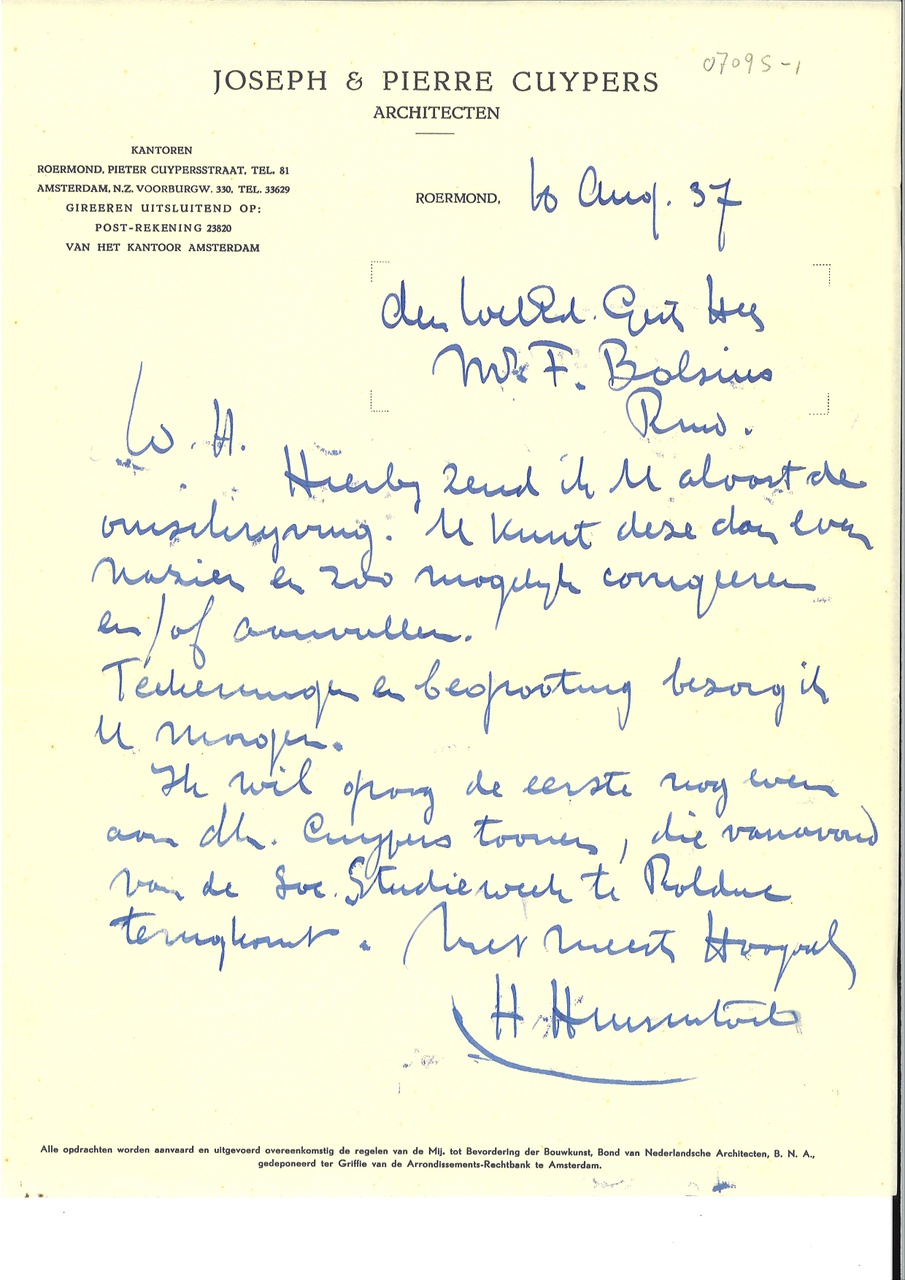 07095-1
JOSEPH & PIERRE CUYPERS
ARCHITECTEN
KANTOREN
ROERMOND, PIETER CUYPERSSTRAAT, TEL. 81
AMSTERDAM, N.Z. VOORBURGW. 330, TEL. 33629
GIREEREN UITSLUITEND OP:
POST-REKENING 23820
VAN HET KANTOOR AMSTERDAM
ROERMOND, 10 Aug. 37
den WelEd. Gestr Heer
Mr. F. Bolsius
Rmd.
W. H.
Hierby zend ik U alvast de
omschryving. U kunt deze dan even
nazien en zoo mogelyk corrigeeren
en/of aanvullen.
Teekeningen en begrooting bezorg ik
U morgen.
Ik wil graag de eerste nog even
aan dhr. Cuypers toonen, die vanavond
van de Soc. Studieweek te Rolduc
terugkomt. Met meeste Hoogach
H.
Alle opdrachten worden aanvaard en uitgevoerd overeenkomstig de regelen van de Mij. tot Bevordering der Bouwkunst, Bond van Nederlandsche Architecten, B. N. A.,
gedeponeerd ter Griffie van de Arrondissements-Rechtbank te Amsterdam.